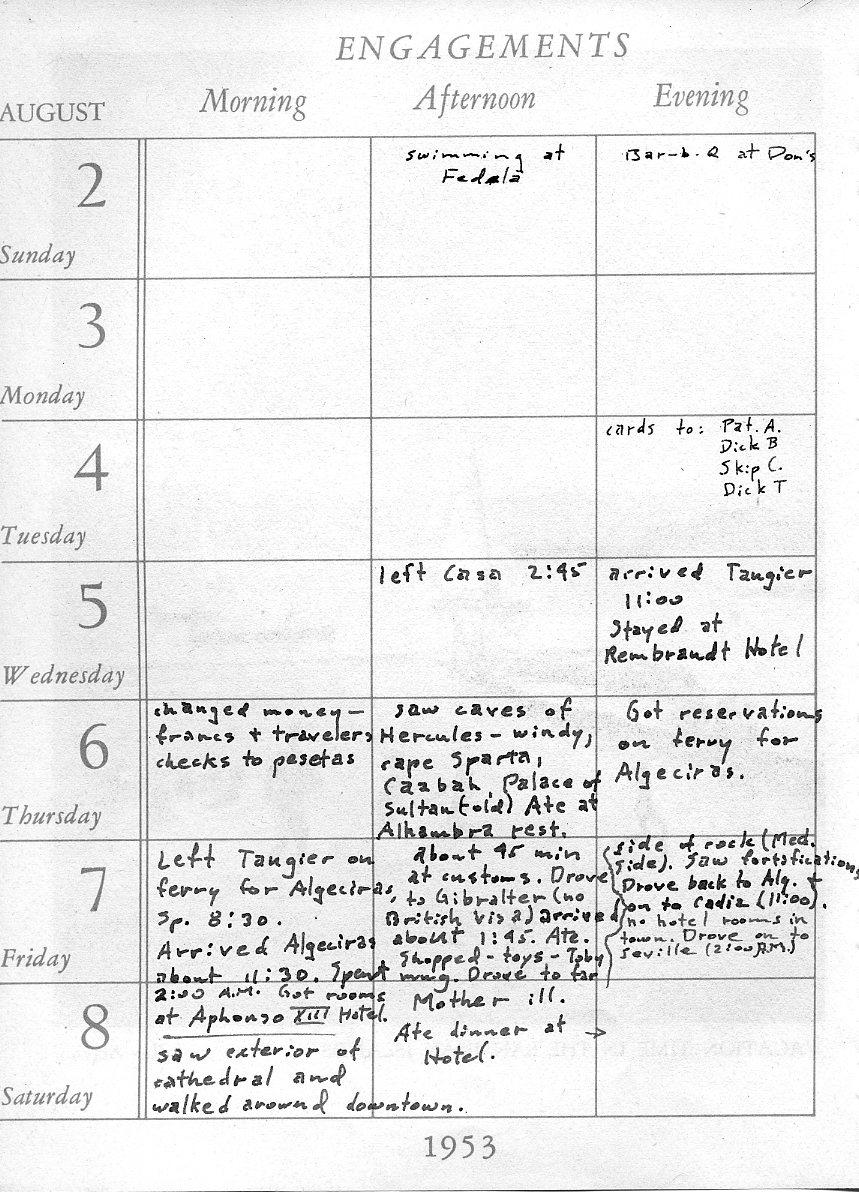 ENGAGEMENTS
AUGUST
Morning
Afternoon
Evening
2
Sunday
swimming at
Fedala
Bar-b-Q at Don's
3
Monday
4
Tuesday
cards to: Pat. A.
Dick B
Skip C.
Dick T
5
Wednesday
left Casa 2:45
arrived Tangier
11:00
Stayed at
Rembrandt Hotel
6
Thursday
changed money —
francs + travelers
checks to pesetas
saw caves of
Hercules - windy,
cape Sparta,
Caabah, Palace of
Sultan (old) Ate at
Alhambra rest.
Got reservations
on ferry for
Algeciras.
7
Friday
Left Tangier on
ferry for Algeciras,
Sp. 8:30.
Arrived Algeciras
about 11:30. Spent
about 45 min
at customs. Drove
to Gibralter (no
British visa) arrived
about 1:45. Ate.
Shopped - toys - Toby
mug. Drove to far
side of rock (Med.
side). Saw fortifications
Drove back to Alg. +
on to Cadiz (11:00).
no hotel rooms in
town. Drove on to
Seville (2:00 A.M.)
8
Saturday
2:00 A.M. Got rooms
at Aphonso XIII Hotel.
saw exterior of
cathedral and
walked around downtown.
Mother ill.
Ate dinner at →
Hotel.
1953